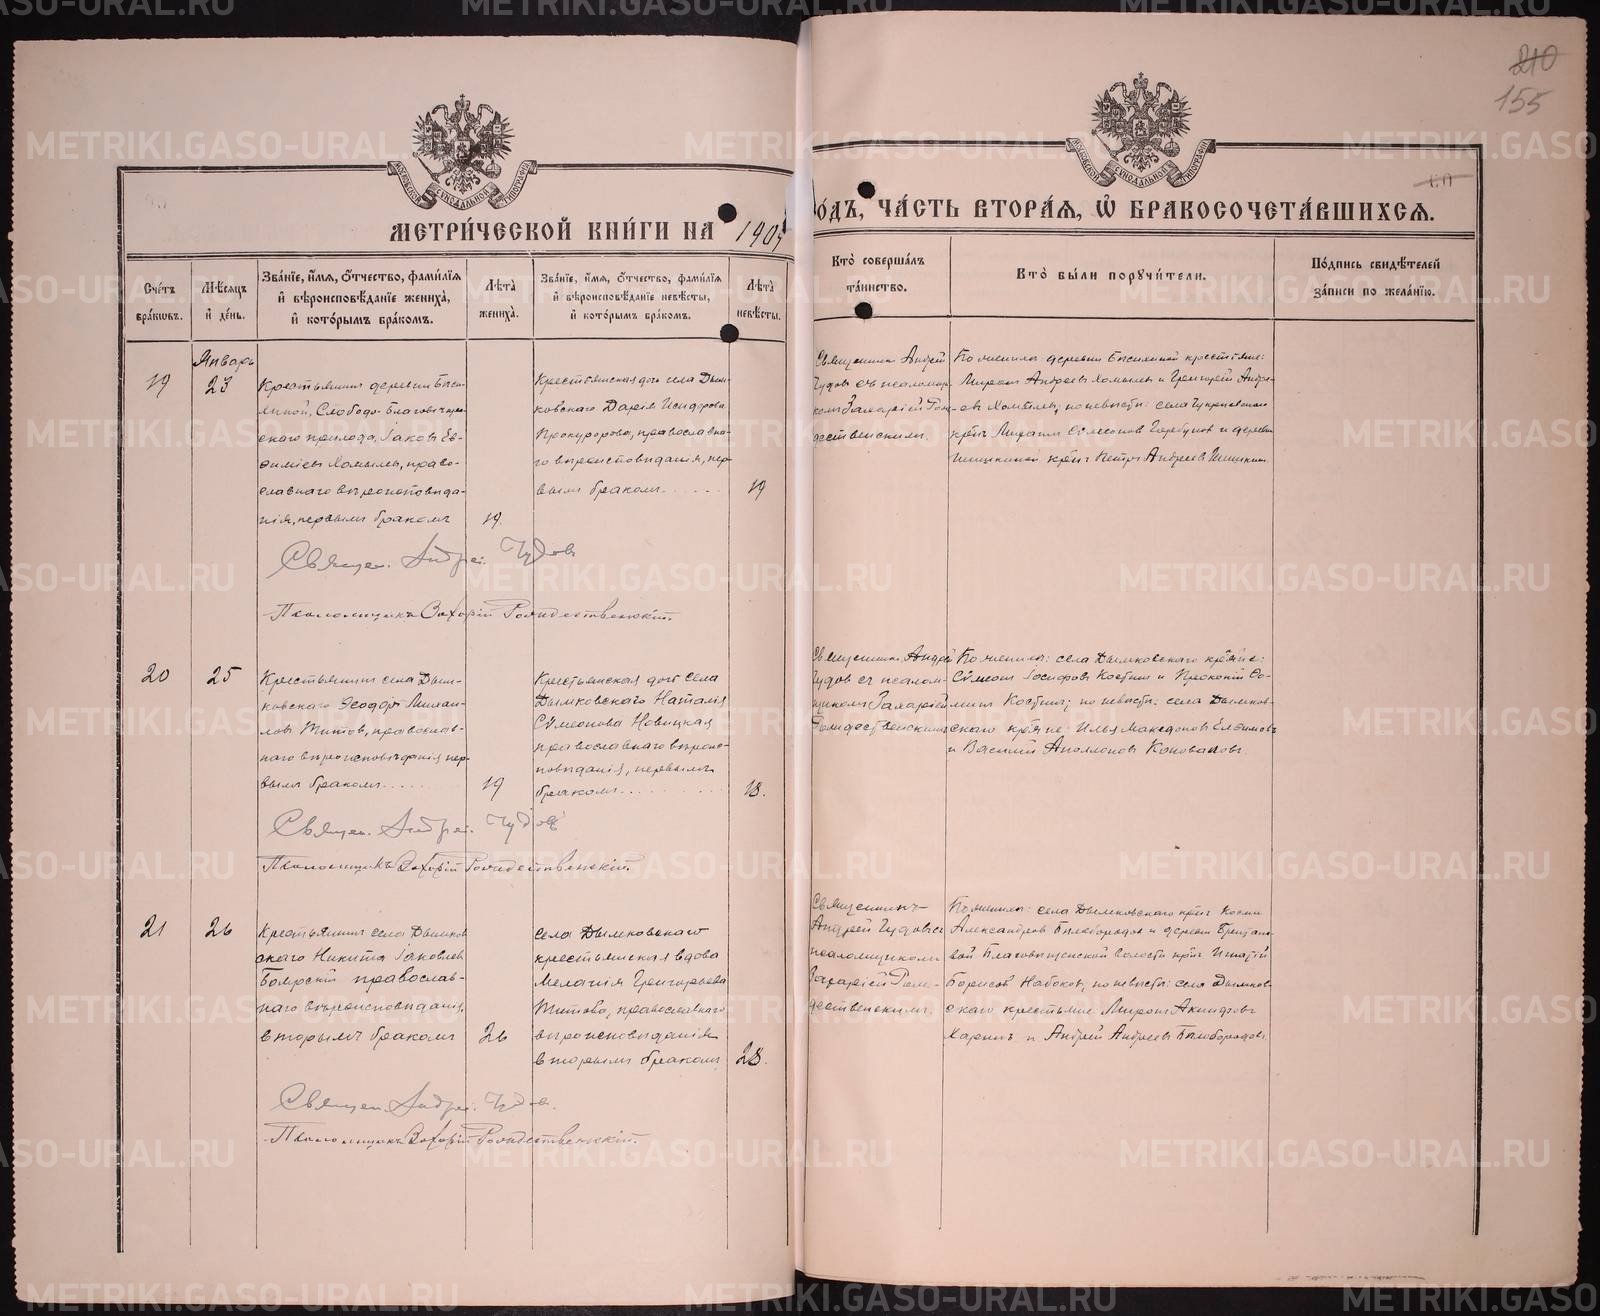 210
155
МЕТРИ́ЧЕСКОЙ КНИ́ГИ НА 190
О́ДЪ, ЧА́СТЬ ВТОРА́Я, Ѡ҆ БРАКОСОЧЕТА́ВШИХСЯ.
Сче́тъ бра́ковъ.
Мѣ́сяцъ и҆ де́нь.
Зва́нїе, и҆́мя, ѻ҆́тчество, фами́лїя и҆ вѣроисповѣ́данїе жениха̀, и҆ кото́рымъ бра́комъ.
Лѣ́та̀ жениха̀.
Зва́нїе, и҆́мя, ѻ҆́тчество, фами́лїя и҆ вѣроисповѣ́данїе невѣ́сты, и҆ кото́рымъ бра́комъ.
Лѣ́та̀ невѣ́сты.
Кто̀ соверша́лъ та́инство.
Кто̀ бы́ли поручи́тели.
По́дпись свидѣ́телей за́писи по жела́нїю.
Январь
19
23
Крестьянинъ деревни
Слободо-Благовѣщен-
скаго прихода, Іаковъ Ев-
фиміевъ Хомылевъ, право-
славнаго вѣроисповѣда-
нія, первымъ бракомъ
19.
Крестьянская дочь села Дым-
ковскаго Дарія Исидорова
Прокуророва, православна-
го вѣроисповѣданія, пер-
вымъ бракомъ
19
Священникъ Андрей
Чудовъ съ псаломщи-
комъ Захаріей Рож-
дественскимъ.
По женихѣ: деревни крестьяне:
Миронъ Андреевъ Хомылевъ и Григорій Андре-
евъ Хомылевъ; по невѣстѣ: села
кр-нъ Михаилъ Сѵмеоновъ Горбуновъ и деревни
Шишкиной кр-нъ Петръ Андреевъ Шишкинъ
Священ. Андрей Чудовъ
Псаломщикъ Захарій Рождественскій.
20
25
Крестьянинъ села Дым-
ковскаго Ѳеодоръ Михаи-
ловъ Титовъ, православ-
наго вѣроисповѣданія, пер-
вымъ бракомъ
19
Крестьянская дочь села
Дымковскаго Наталія
Сѵмеонова Новицкая
православнаго вѣроис-
повѣданія, первымъ
бракомъ
18.
Священникъ Андрей
Чудовъ съ псалом-
щикомъ Захаріей
Рождественскимъ
По женихѣ: села Дымковскаго кр-яне:
Сѵмеонъ Іосифовъ Костинъ и Прокопій Ѳо-
минъ Костинъ; по невѣстѣ: села Дымков-
скаго кр-яне: Илья Македоновъ Елфимовъ
и Василій Аполлоновъ Коноваловъ.
Священ. Андрей Чудовъ
Псаломщикъ Захарій Рождественскій.
21
26
Крестьянинъ села Дымков
скаго Никита Іаковлевъ
Боярскій православ-
наго вѣроисповѣданія,
вторымъ бракомъ
26
Села Дымковскаго
крестьянская вдова
Мелагія Григорьева
Титова, православнаго
вѣроисповѣданія
вторымъ бракомъ
28.
Священникъ
Андрей Чудовъ съ
псаломщикомъ
Захаріей Рож-
дественскимъ.
По женихѣ: села Дымковскаго кр-нъ
Александровъ Бѣлобородовъ и деревни
вой Благовѣщенской волости кр-нъ Игнатій
Борисовъ Набоковъ, по невѣстѣ: села Дымков-
скаго крестьяне: Миронъ Акинфовъ
Харинъ и Андрей Андреевъ Бѣлобородовъ.
Священ. Андрей Чудовъ.
Псаломщикъ Захарій Рождественскій.
METRIKI.GASO-URAL.RU